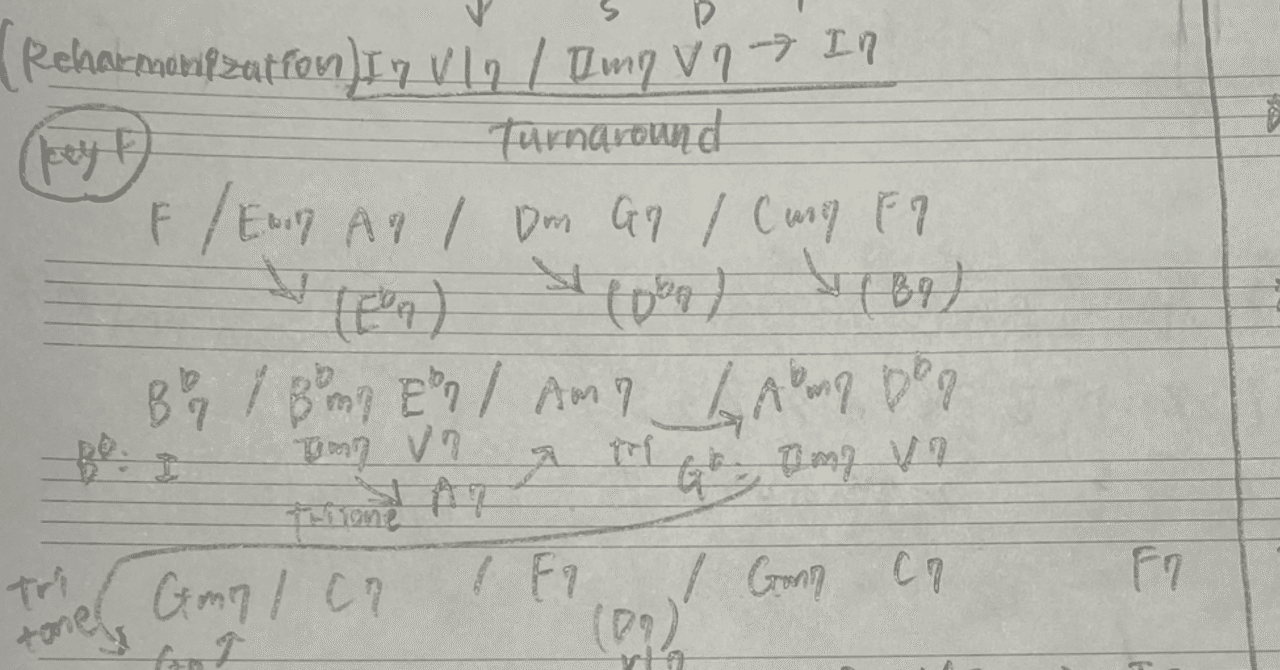 S D
(Reharmonization) I7 VI7 / IIm7 V7 → I7
Turnaround
key F
F / Em7 A7 / Dm G7 / Cm7 F7
(E♭7) (D♭7) (B7)
B♭7 / B♭m7 E♭7 / Am7 / A♭m7 D♭7
B♭: I IIm7 V7 tri G♭: IIm7 V7
tritone A7
tri tone Gm7 / C7 / F7 / Gm7 C7 F7
(D7)
VI7